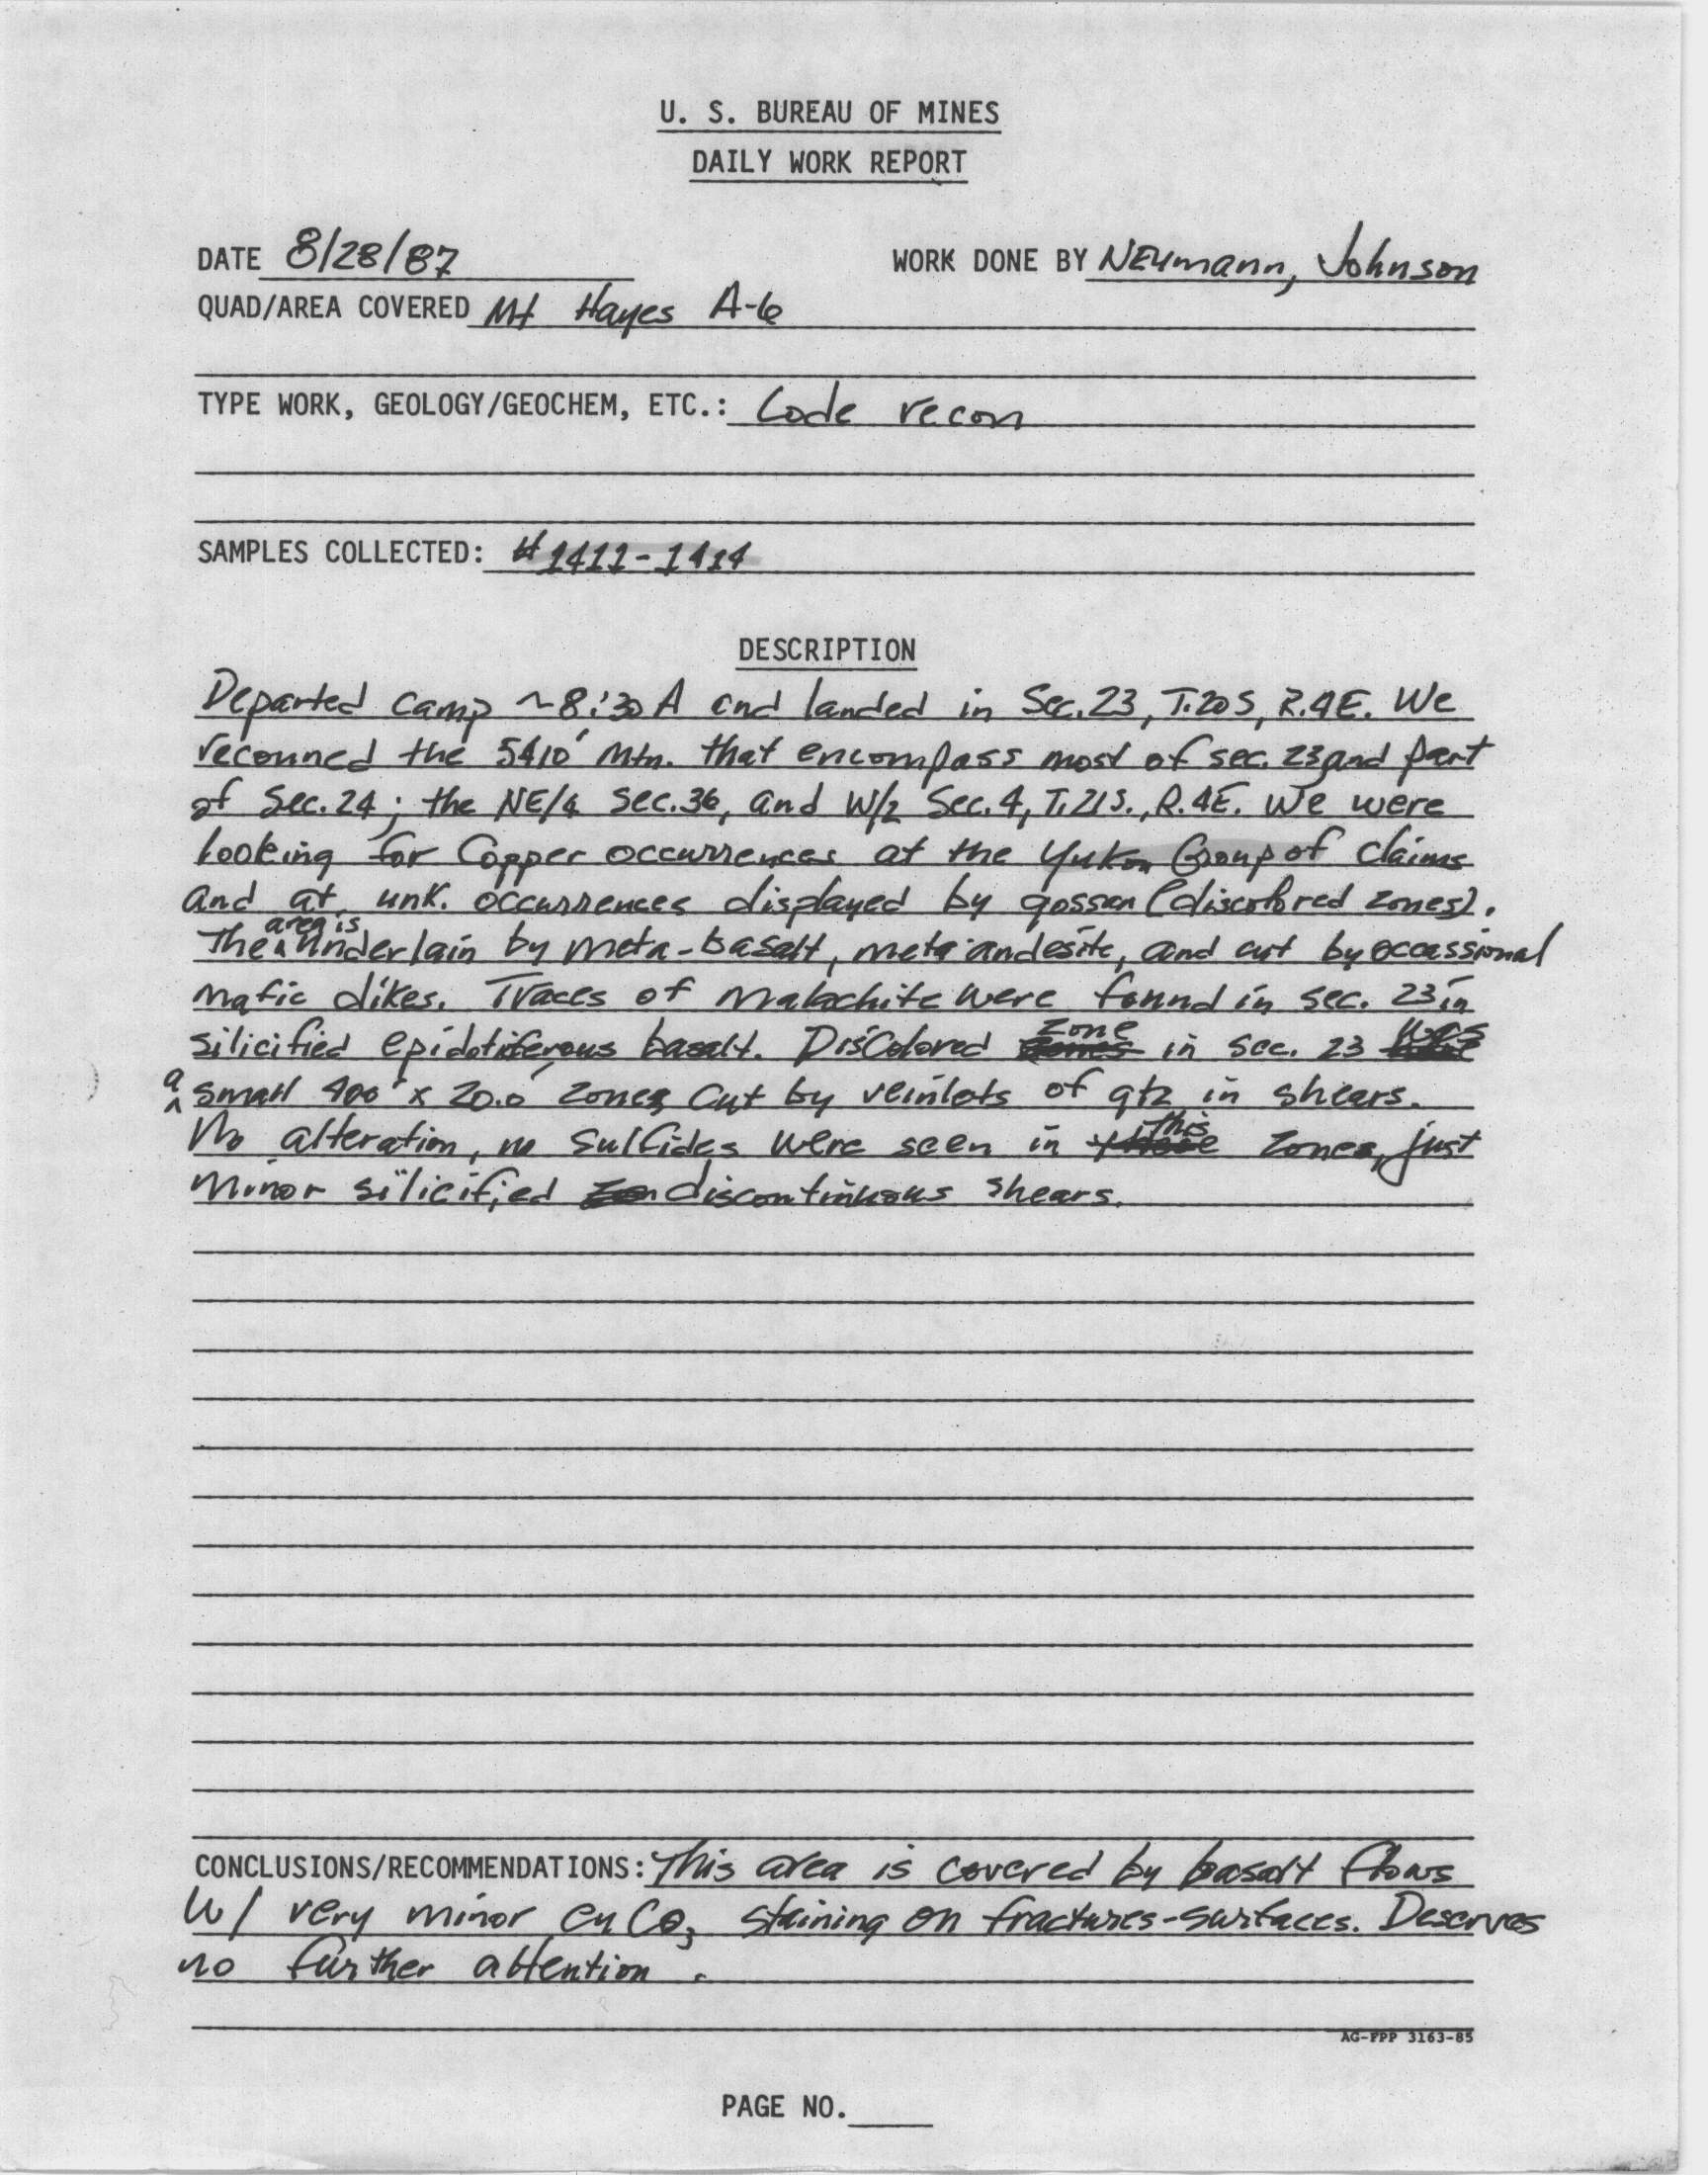 U. S. BUREAU OF MINES
DAILY WORK REPORT
DATE 8/28/87 WORK DONE BY Neumann, Johnson
QUAD/AREA COVERED Mt Hayes A-6
TYPE WORK, GEOLOGY/GEOCHEM, ETC.: Lode recon
SAMPLES COLLECTED: #1411-1414
DESCRIPTION
Departed camp ~8:30 A and landed in Sec. 23, T.20S, R.4E. We
reconned the 5410' Mtn. that encompass most of sec. 23 and part
of Sec. 24; the NE/4 Sec. 36, and W/2 Sec. 4, T.21S., R.4E. We were
looking for Copper occurrences at the Yukon Group of claims
and at unk. occurrences displayed by gossan (discolored zones).
The area is underlain by meta-basalt, meta-andesite, and cut by occassional
mafic dikes. Traces of malachite were found in sec. 23 in
silicified epidotiferous basalt. Discolored zone in sec. 23 was
a small 400' x 20.0' zone cut by veinlets of qtz in shears.
No alteration, no sulfides were seen in this zone, just
minor silicified discontinuous shears.
CONCLUSIONS/RECOMMENDATIONS: This area is covered by basalt flows
w/ very minor CuCO₃ staining on fractures-surfaces. Deserves
no further attention.
AG-FPP 3163-85
PAGE NO.